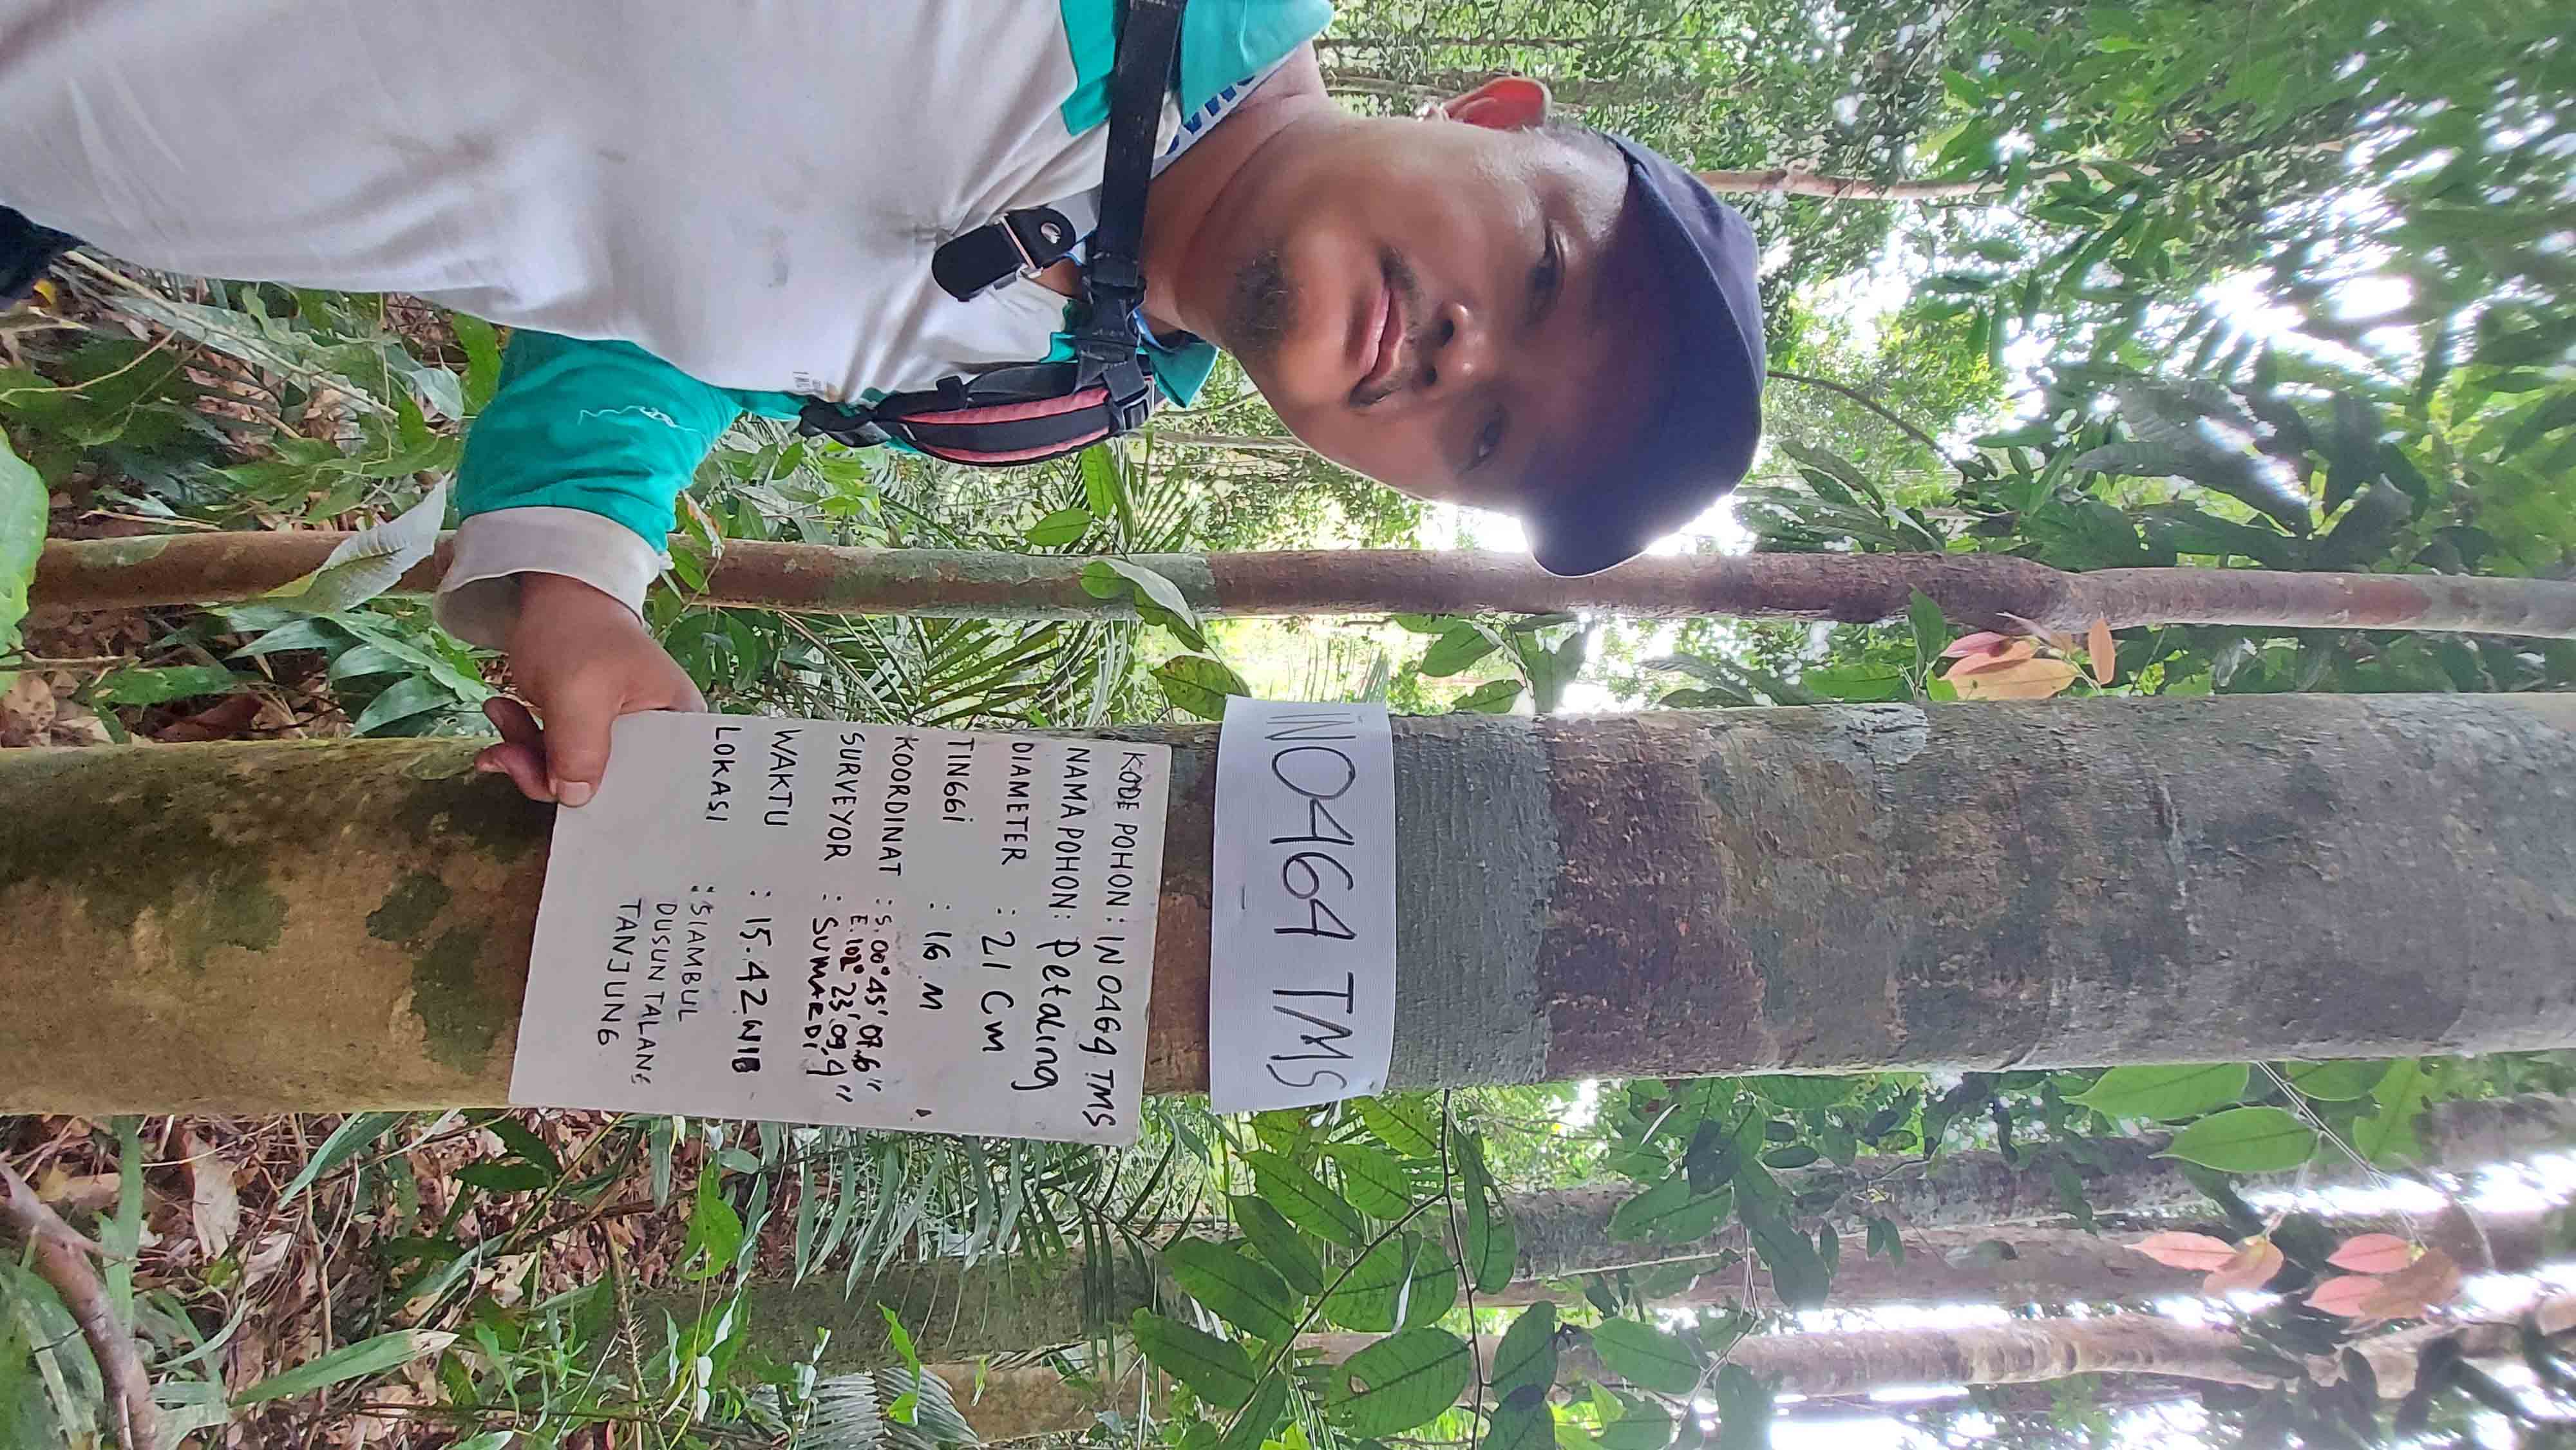 IN0464 TMS
KODE POHON : IN 0464 TMS
NAMA POHON : Petaling
DIAMETER : 21 Cm
TINGGI : 16 M
KOORDINAT : S. 00° 45' 07.6"
E. 102° 23' 09.4"
SURVEYOR : SUMARDI
WAKTU : 15.42 WIB
LOKASI : SIAMBUL
DUSUN TALANG
TANJUNG